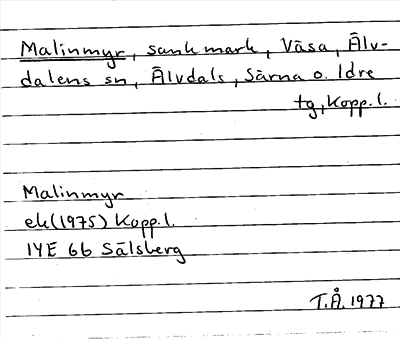 Malinmyr, sank mark, Väsa, Älv-
dalens sn, Älvdals, Särna o. Idre
tg, Kopp. l.
Malinmyr
ek (1975) Kopp. l.
14E 6b Sälsberg
T.Å. 1977